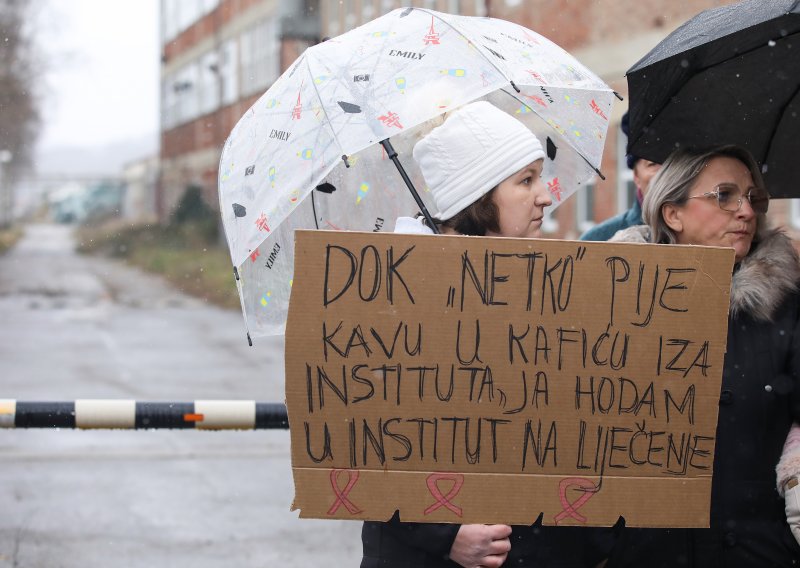 EMILY
EMILY
EMILY
EMILY
EMILY
DOK „NETKO” PIJE
KAVU U KAFIĆU IZA
INSTITUTA, JA HODAM
U INSTITUT NA LIJEČENJE